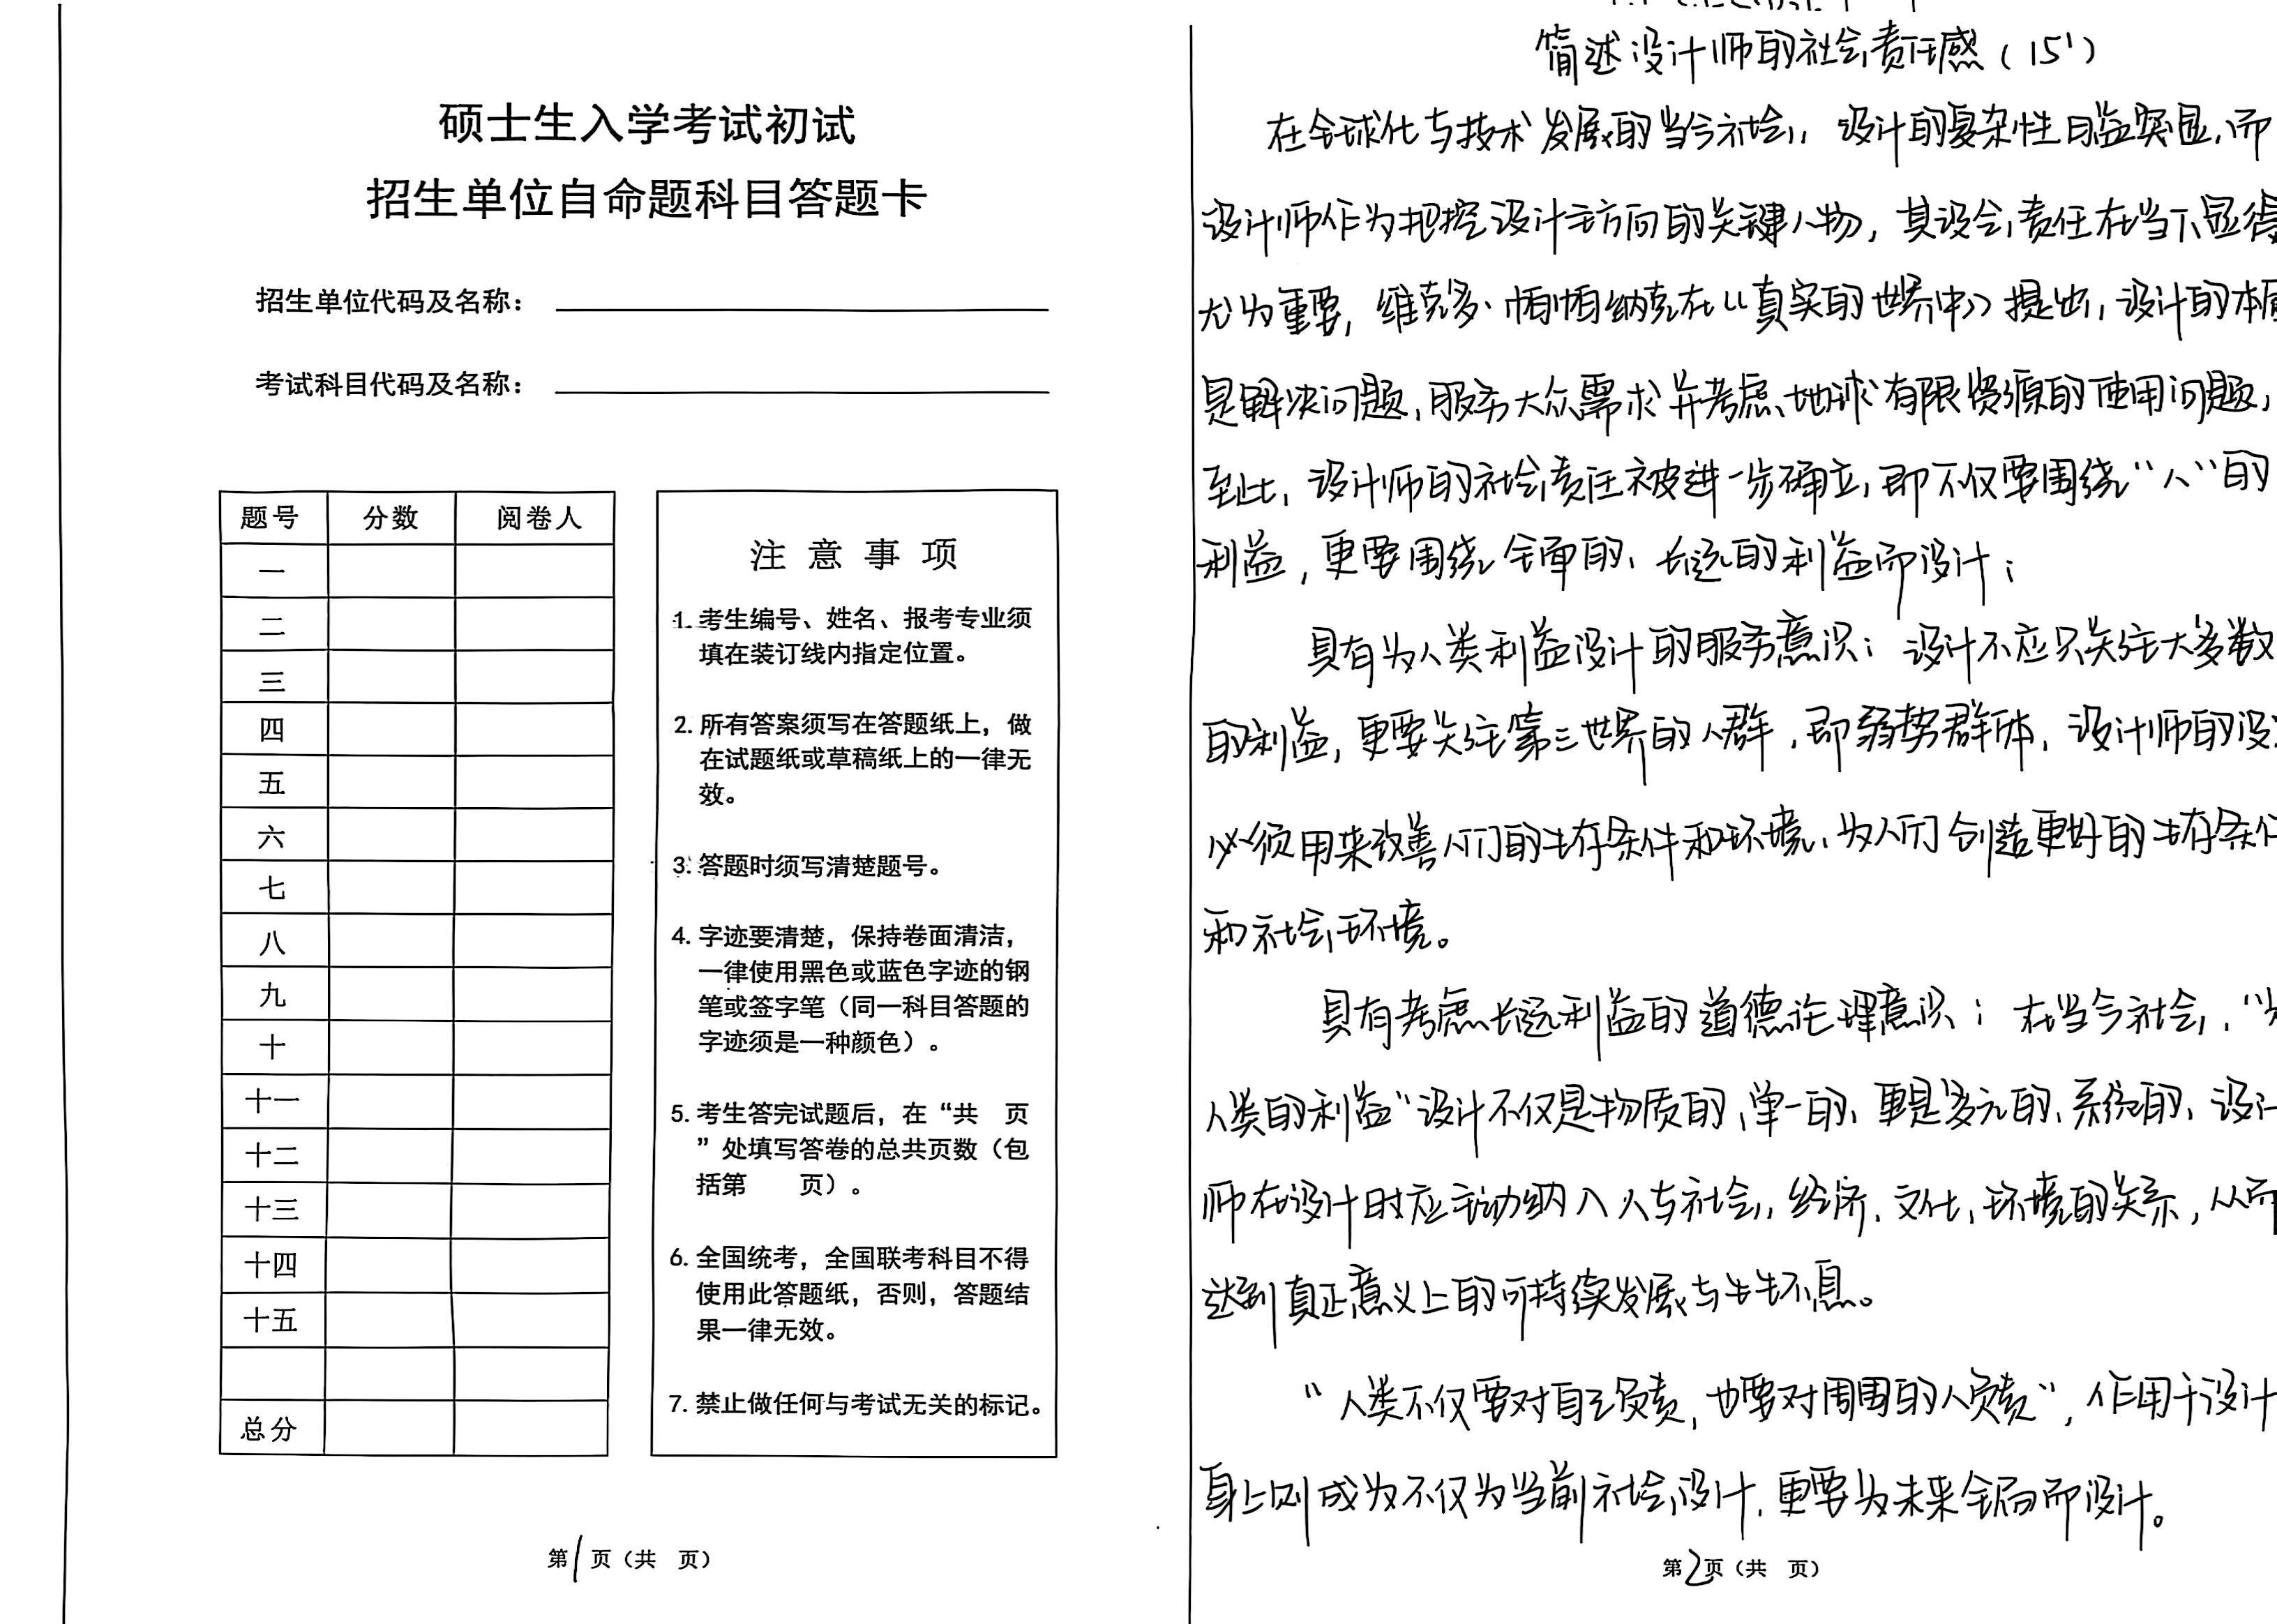 硕士生入学考试初试
招生单位自命题科目答题卡
招生单位代码及名称：
考试科目代码及名称：
题号 分数 阅卷人
一
二
三
四
五
六
七
八
九
十
十一
十二
十三
十四
十五
总分
注意事项
1. 考生编号、姓名、报考专业须
填在装订线内指定位置。
2. 所有答案须写在答题纸上，做
在试题纸或草稿纸上的一律无
效。
3. 答题时须写清楚题号。
4. 字迹要清楚，保持卷面清洁，
一律使用黑色或蓝色字迹的钢
笔或签字笔（同一科目答题的
字迹须是一种颜色）。
5. 考生答完试题后，在“共 页
”处填写答卷的总共页数（包
括第 页）。
6. 全国统考，全国联考科目不得
使用此答题纸，否则，答题结
果一律无效。
7. 禁止做任何与考试无关的标记。
第1页（共 页）
简述设计师的社会责任感（15'）
在全球化与技术发展的当今社会，设计的复杂性日益突显，而
设计师作为把控设计主方向的关键人物，其设会责任在当下显得
尤为重要，维克多·帕帕纳克在《真实的世界中》提出，设计的本质
是解决问题、服务大众需求并考虑地球有限资源的使用问题，
至此，设计师的社会责任被进一步确立，即不仅要围绕“人”的
利益，更要围绕全面的、长远的利益而设计；
具有为人类利益设计的服务意识；设计不应只关注大多数
的利益，更要关注第三世界的人群，即弱势群体，设计师的设
必须用来改善人们的生存条件和环境，为人们创造更好的生存条件
和社会环境。
具有考虑长远利益的道德伦理意识；在当今社会，“为
人类的利益”设计不仅是物质的、单一的，更是多元的、系统的，设计
师在设计时应主动纳入人与社会，经济、文化、环境的关系，从而
达到真正意义上的可持续发展与生生不息。
“人类不仅要对自己负责，也要对周围的人负责”，作用于设计
身上则成为不仅为当前社会设计，更要为未来全局而设计。
第2页（共 页）